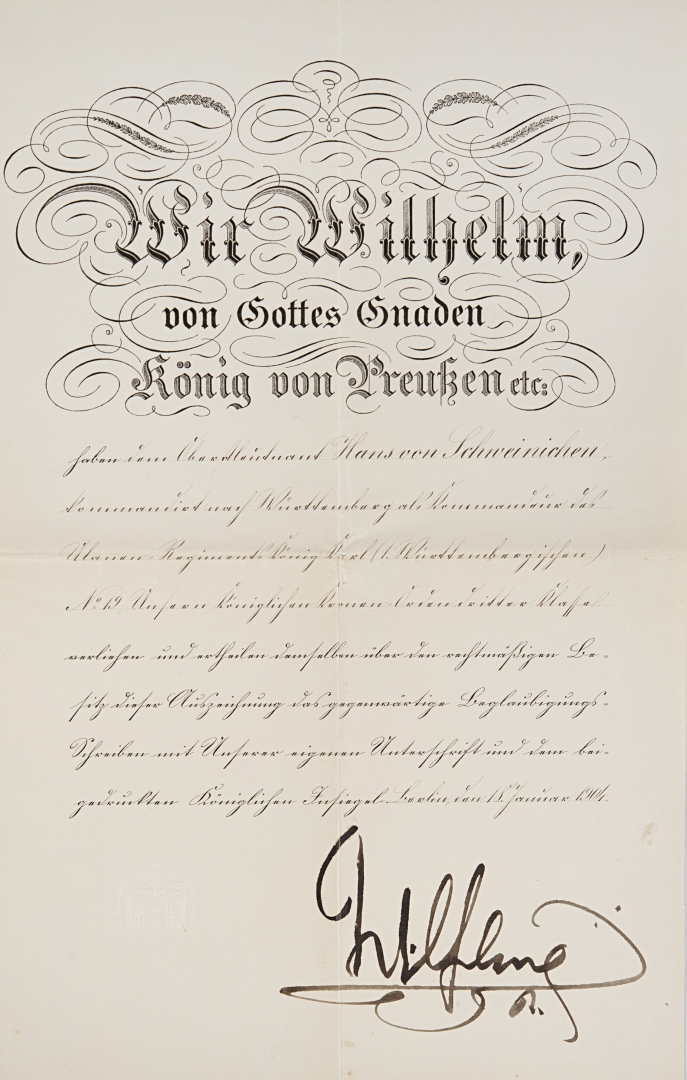 Wir Wilhelm,
von Gottes Gnaden
König von Preußen etc:
haben dem Oberstleutnant Hans von Schweinichen,
kommandirt nach Württemberg als Kommandeur des
Ulanen-Regiments König Karl (1. Württembergischen)
No 19, Unsern Königlichen Kronen-Orden dritter Klasse
verliehen und ertheilen demselben über den rechtmäßigen Be-
sitz dieser Auszeichnung das gegenwärtige Beglaubigungs-
Schreiben mit Unserer eigenen Unterschrift und dem bei-
gedruckten Königlichen Insiegel. Berlin, den 18. Januar 1904.
Wilhelm
R.